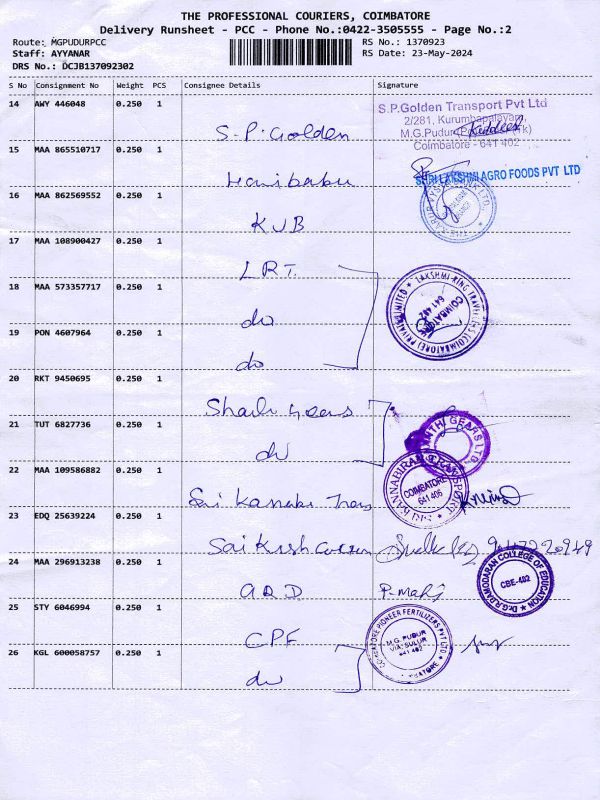 THE PROFESSIONAL COURIERS, COIMBATORE
Delivery Runsheet - PCC - Phone No.:0422-3505555 - Page No.:2
Route: MGPUDURPCC
RS No.: 1370923
Staff: AYYANAR
RS Date: 23-May-2024
DRS No.: DCJB137092302
S No Consignment No Weight PCS Consignee Details Signature
14 AWY 446048 0.250 1
S.P.Golden Transport Pvt Ltd
2/281, Kurumbapalayam
M.G.Pudur
Coimbatore - 641 402
S.P. Golden
15 MAA 865510717 0.250 1
SHRI LAKSHMI AGRO FOODS PVT LTD
Haribabu
16 MAA 862569552 0.250 1
KVB
17 MAA 108900427 0.250 1
LRT.
LAKSHMI RING TRAVELLERS (COIMBATORE) PRIVATE LIMITED
COIMBATORE
641 402
18 MAA 573357717 0.250 1
do
19 PON 4607964 0.250 1
do
20 RKT 9450695 0.250 1
Shanthi Gears
SHANTHI GEARS LTD.
21 TUT 6827736 0.250 1
do
22 MAA 109586882 0.250 1
SRI KANNABIRAN TRANSPORT
COIMBATORE
641 405
Sri Kannabi Trans
23 EDQ 25639224 0.250 1
Sai Krish
24 MAA 296913238 0.250 1
GRD P-mary
Dr.G.R.DAMODARAN COLLEGE OF EDUCATION
CBE-402
25 STY 6046994 0.250 1
CPF
COIMBATORE PIONEER FERTILIZERS PVT LTD
M.G. PUDUR
VIA SULUR
641 402
26 KGL 600058757 0.250 1
do